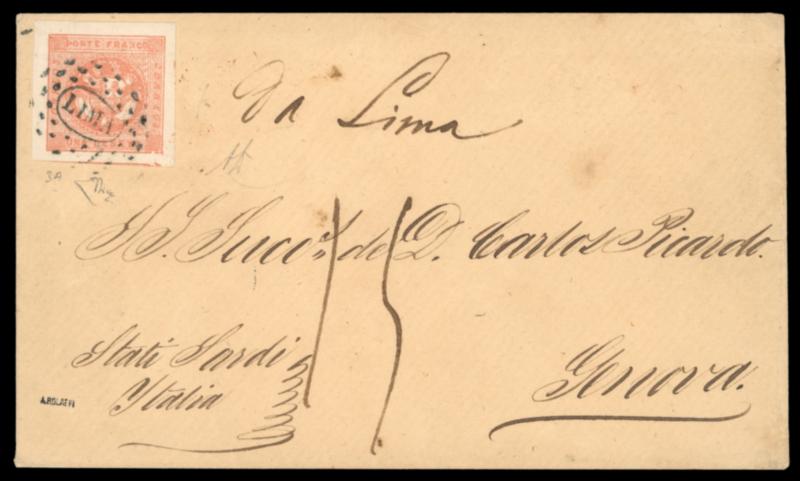 PORTE FRANCO
CORREOS
LIMA
da Lima
3A
S. S. Suco.s de D. Carlos Picardo.
15
Stati Sardi
Italia
Genova.
A.BOLAFFI